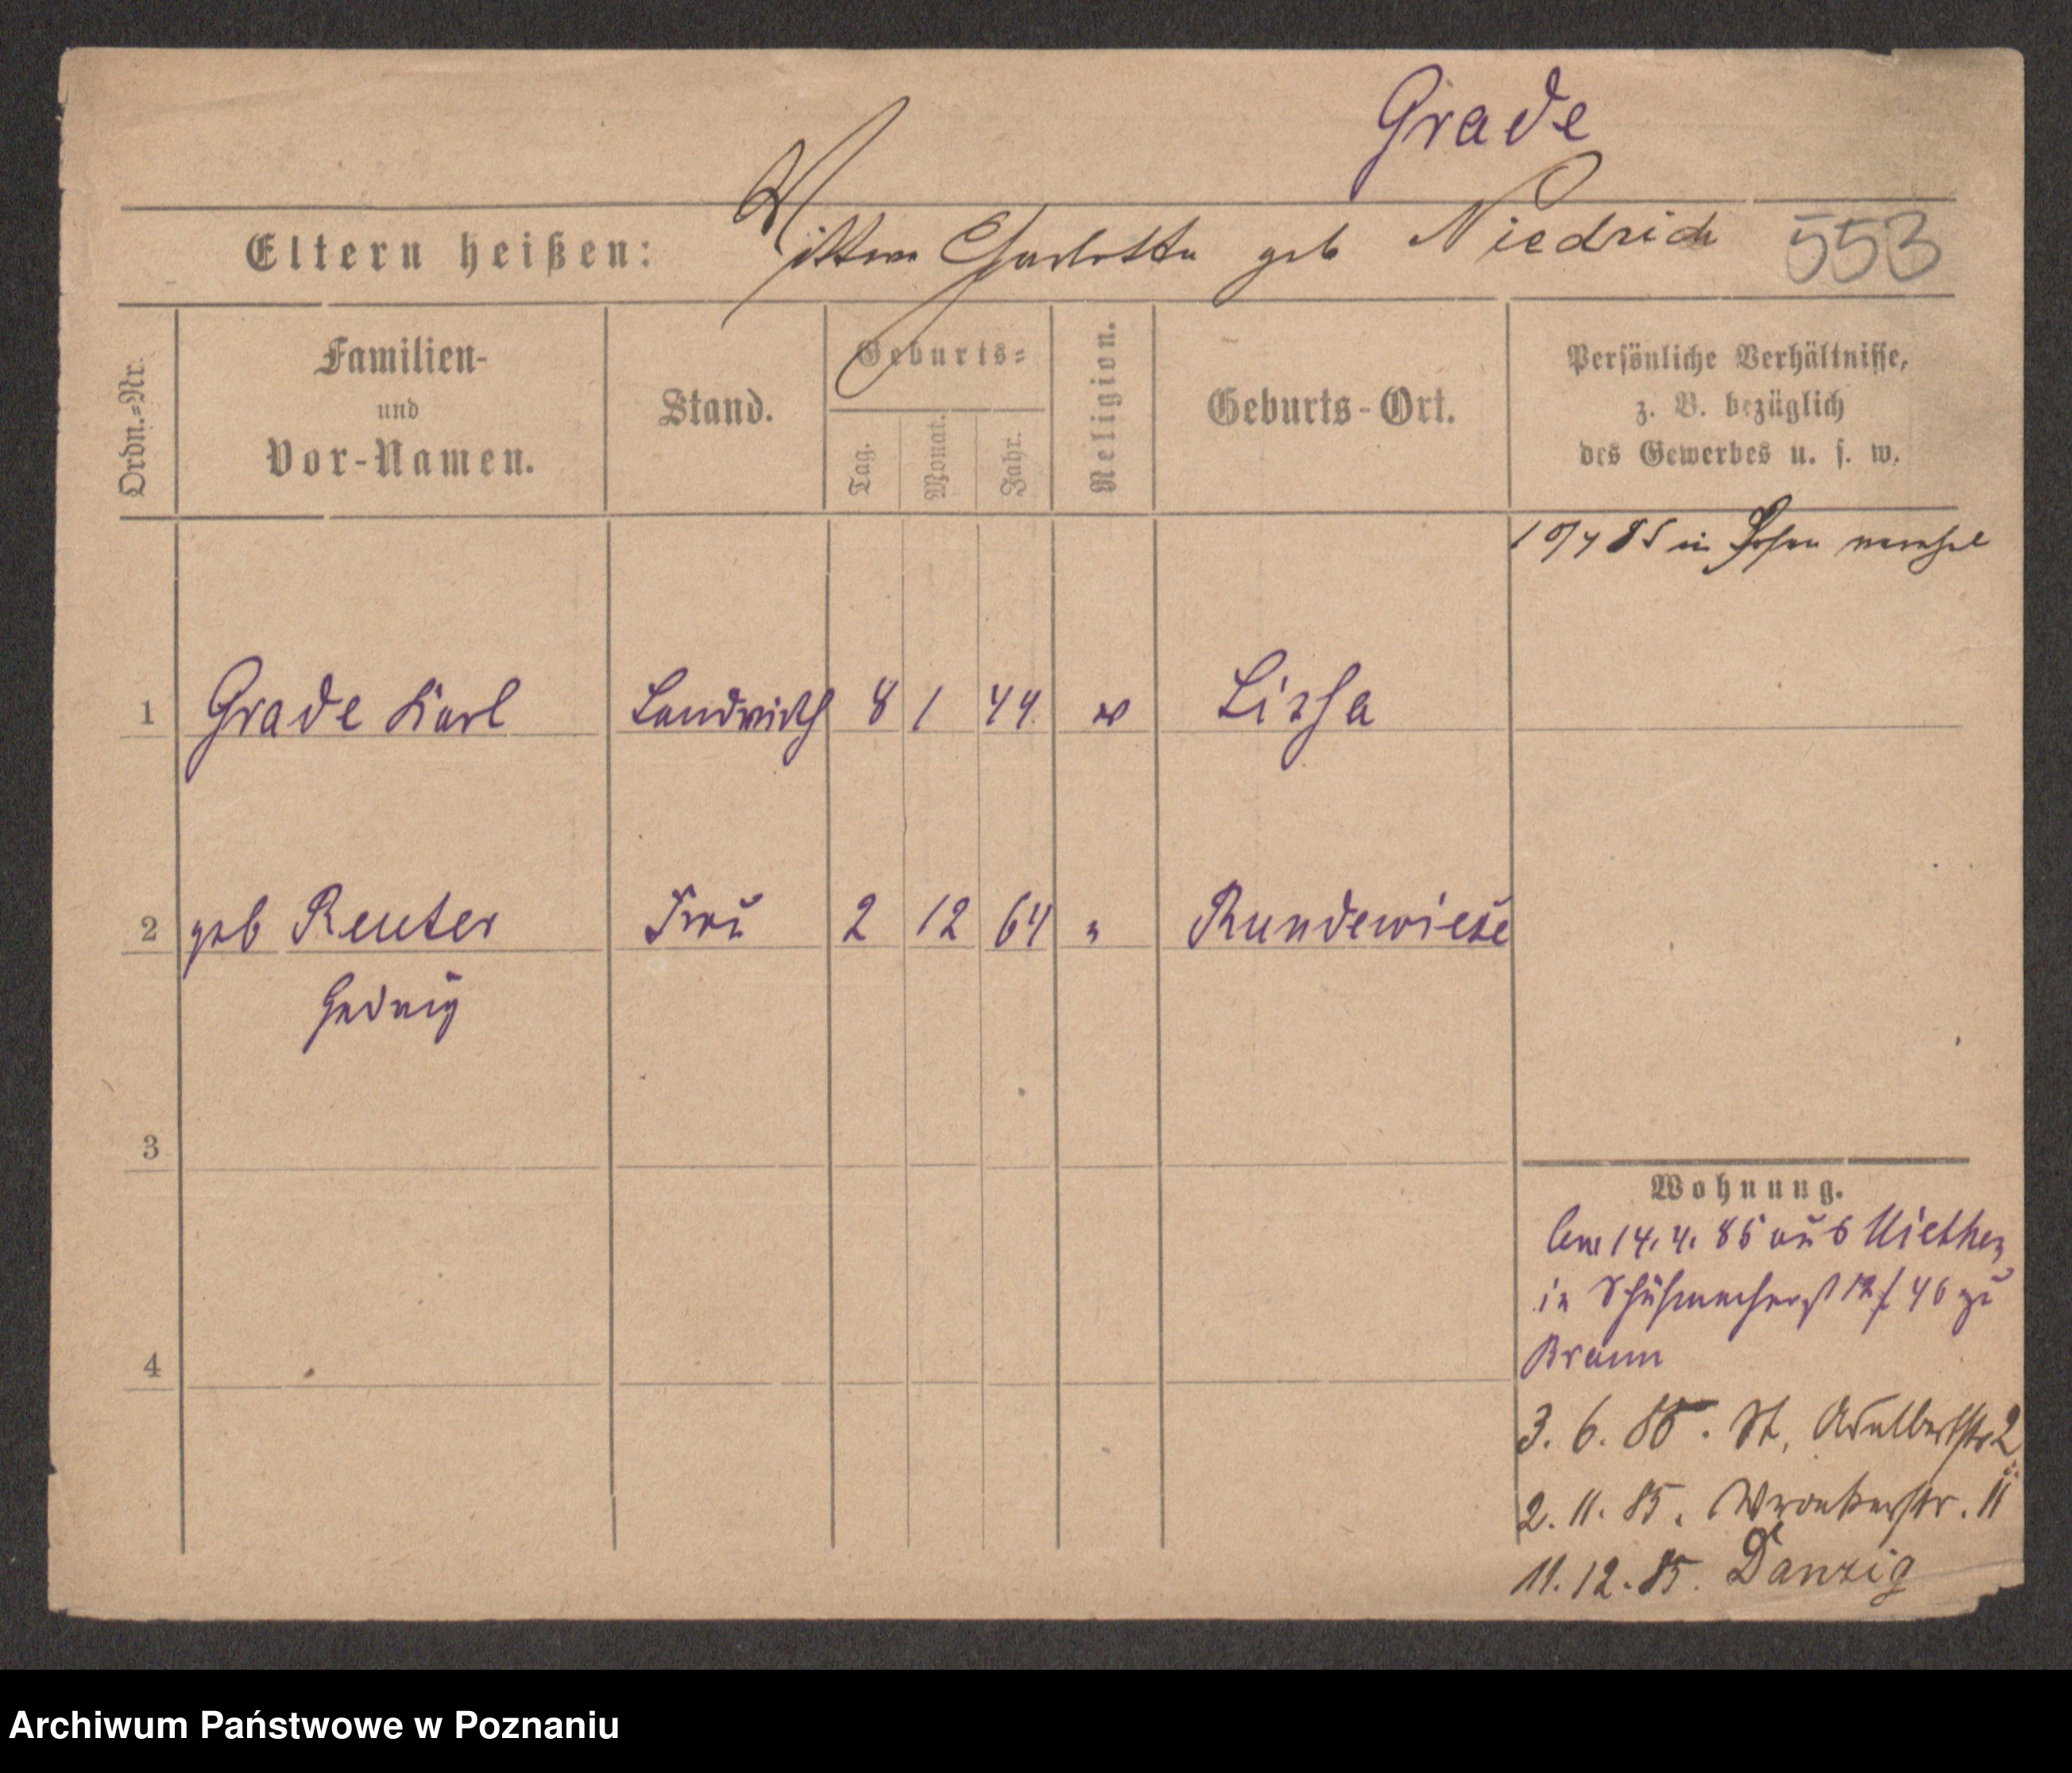 Grade
Eltern heißen: Wittwe Charlotte geb Niedrich 553
Ordn.=Nr.
Familien- und Vor-Namen.
Stand.
Geburts=
Tag. Monat. Jahr.
Religion.
Geburts-Ort.
Persönliche Verhältnisse,
z. B. bezüglich
des Gewerbes u. s. w.
85 in Posen
1 Grade Karl Landwirth 8 1 44 Lissa
2 geb Reuter Frau 2 12 64 " Rundewiese
Hedwig
3
4
Wohnung.
14. 4. 85 aus
in Schuhmacherst 46 zu
Braun
3. 6. 85. St. Adalbertstr 2
2. 11. 85. Wronkerstr. 11
11. 12. 85. Danzig
Archiwum Państwowe w Poznaniu